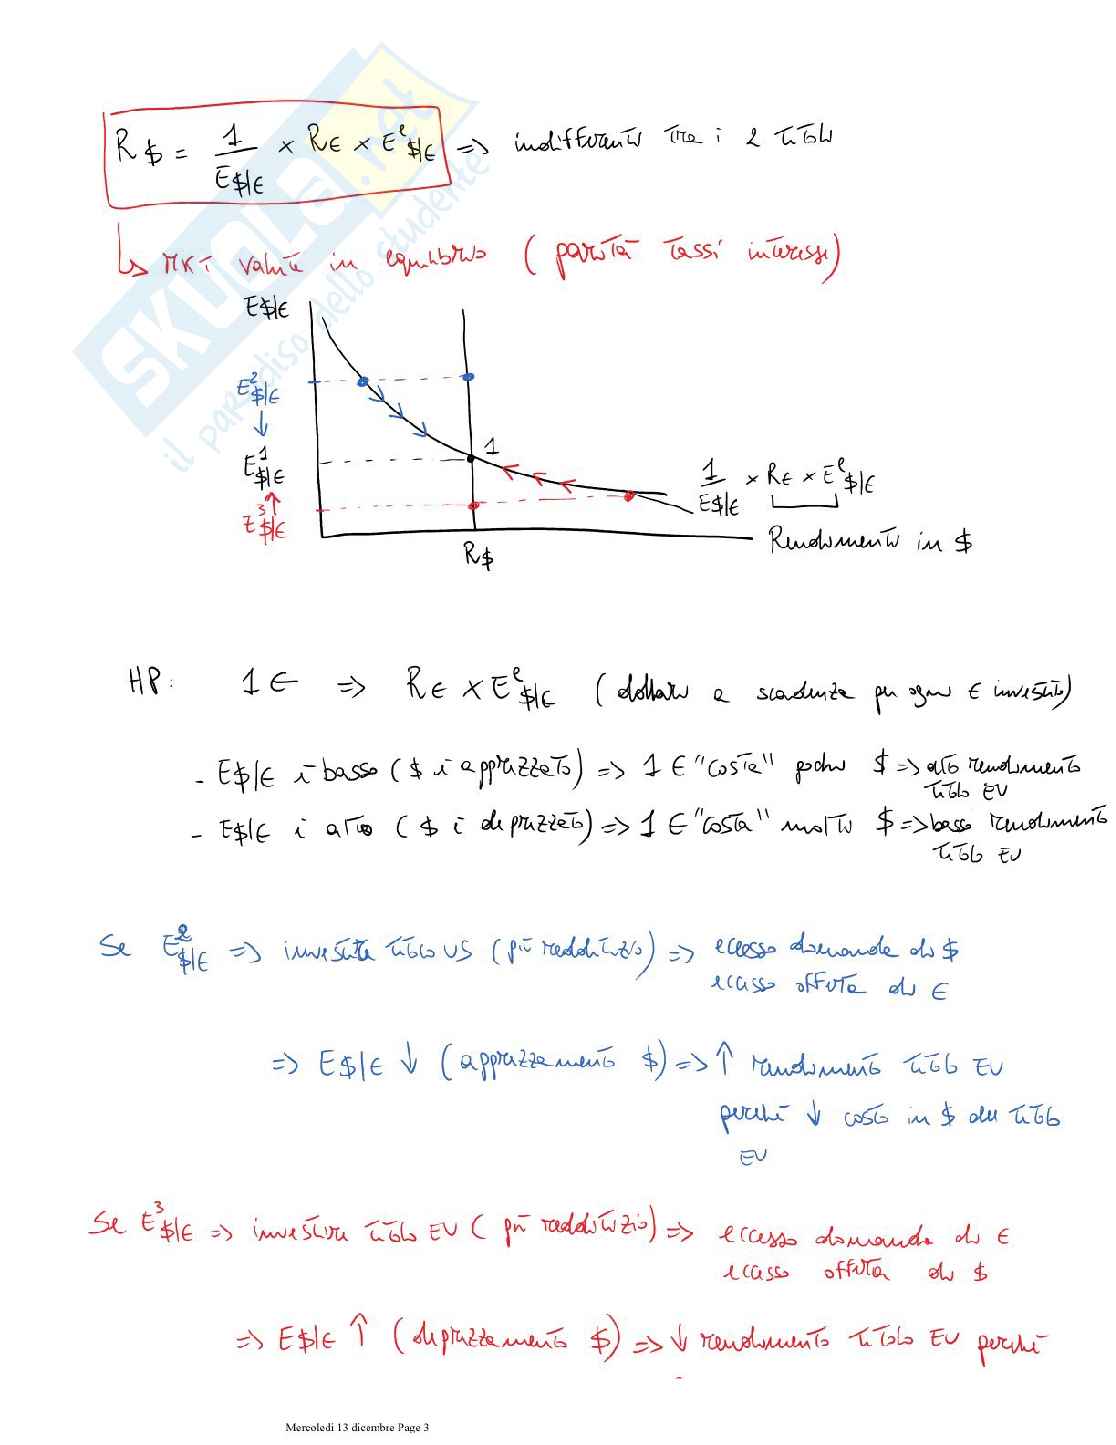 R$ = 1/E$|€ × R€ × Eᵉ$|€ => indifferente tra i 2 titoli
↳ MKT valute in equilibrio (parità tassi interessi)
E$|€
E²$|€
↓
E¹$|€
1
↑
E³$|€
1/E$|€ × R€ × Eᵉ$|€
Rendimento in $
R$
HP: 1€ => R€ × Eᵉ$|€ (dollari a scadenza per ogni € investito)
- E$|€ è basso ($ è apprezzato) => 1€ "costa" pochi $ => alto rendimento
titolo EU
- E$|€ è alto ($ è deprezzato) => 1€ "costa" molti $ => basso rendimento
titolo EU
Se E²$|€ => investite titolo US (più redditizio) => eccesso domanda di $
eccesso offerta di €
=> E$|€ ↓ (apprezzamento $) => ↑ rendimento titolo EU
perché ↓ costo in $ del titolo
EU
Se E³$|€ => investire titolo EU (più redditizio) => eccesso domanda di €
eccesso offerta di $
=> E$|€ ↑ (deprezzamento $) => ↓ rendimento titolo EU perché
SKUOLA.net
il paradiso dello studente
Mercoledì 13 dicembre Page 3